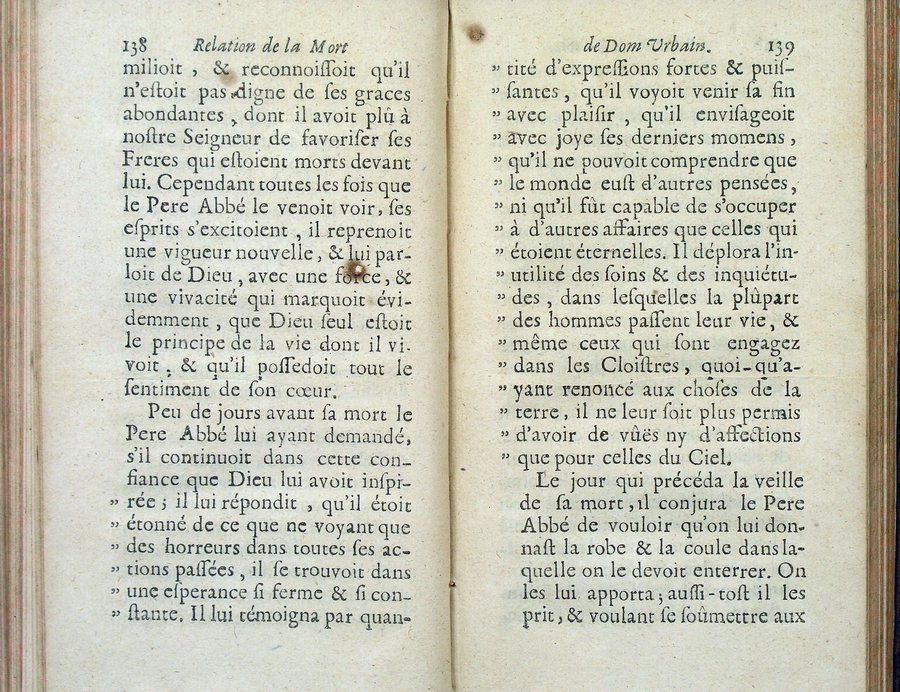 138 Relation de la Mort
milioit , & reconnoiſſoit qu'il
n'eſtoit pas digne de ſes graces
abondantes , dont il avoit plû à
noſtre Seigneur de favoriſer ſes
Freres qui eſtoient morts devant
lui. Cependant toutes les fois que
le Pere Abbé le venoit voir, ſes
eſprits s'excitoient , il reprenoit
une vigueur nouvelle, & lui par-
loit de Dieu, avec une force, &
une vivacité qui marquoit évi-
demment , que Dieu ſeul eſtoit
le principe de la vie dont il vi-
voit , & qu'il poſſedoit tout le
ſentiment de ſon cœur.
Peu de jours avant ſa mort le
Pere Abbé lui ayant demandé,
s'il continuoit dans cette con-
fiance que Dieu lui avoit inſpi-
„ rée ; il lui répondit , qu'il étoit
„ étonné de ce que ne voyant que
„ des horreurs dans toutes ſes ac-
„ tions paſſées , il ſe trouvoit dans
„ une eſperance ſi ferme & ſi con-
„ ſtante. Il lui témoigna par quan-
de Dom Urbain. 139
„ tité d'expreſſions fortes & puiſ-
„ ſantes , qu'il voyoit venir ſa fin
„ avec plaiſir , qu'il enviſageoit
„ avec joye ſes derniers momens ,
„ qu'il ne pouvoit comprendre que
„ le monde euſt d'autres pensées,
„ ni qu'il fût capable de s'occuper
„ à d'autres affaires que celles qui
„ étoient éternelles. Il déplora l'in-
„ utilité des ſoins & des inquiétu-
„ des , dans leſquelles la plûpart
„ des hommes paſſent leur vie, &
„ même ceux qui ſont engagez
„ dans les Cloiſtres, quoi-qu'a-
„ yant renoncé aux choſes de la
„ terre, il ne leur ſoit plus permis
„ d'avoir de vûës ny d'affections
„ que pour celles du Ciel.
Le jour qui précéda la veille
de ſa mort, il conjura le Pere
Abbé de vouloir qu'on lui don-
naſt la robe & la coule dans la-
quelle on le devoit enterrer. On
les lui apporta; auſſi-toſt il les
prit, & voulant ſe ſoûmettre aux